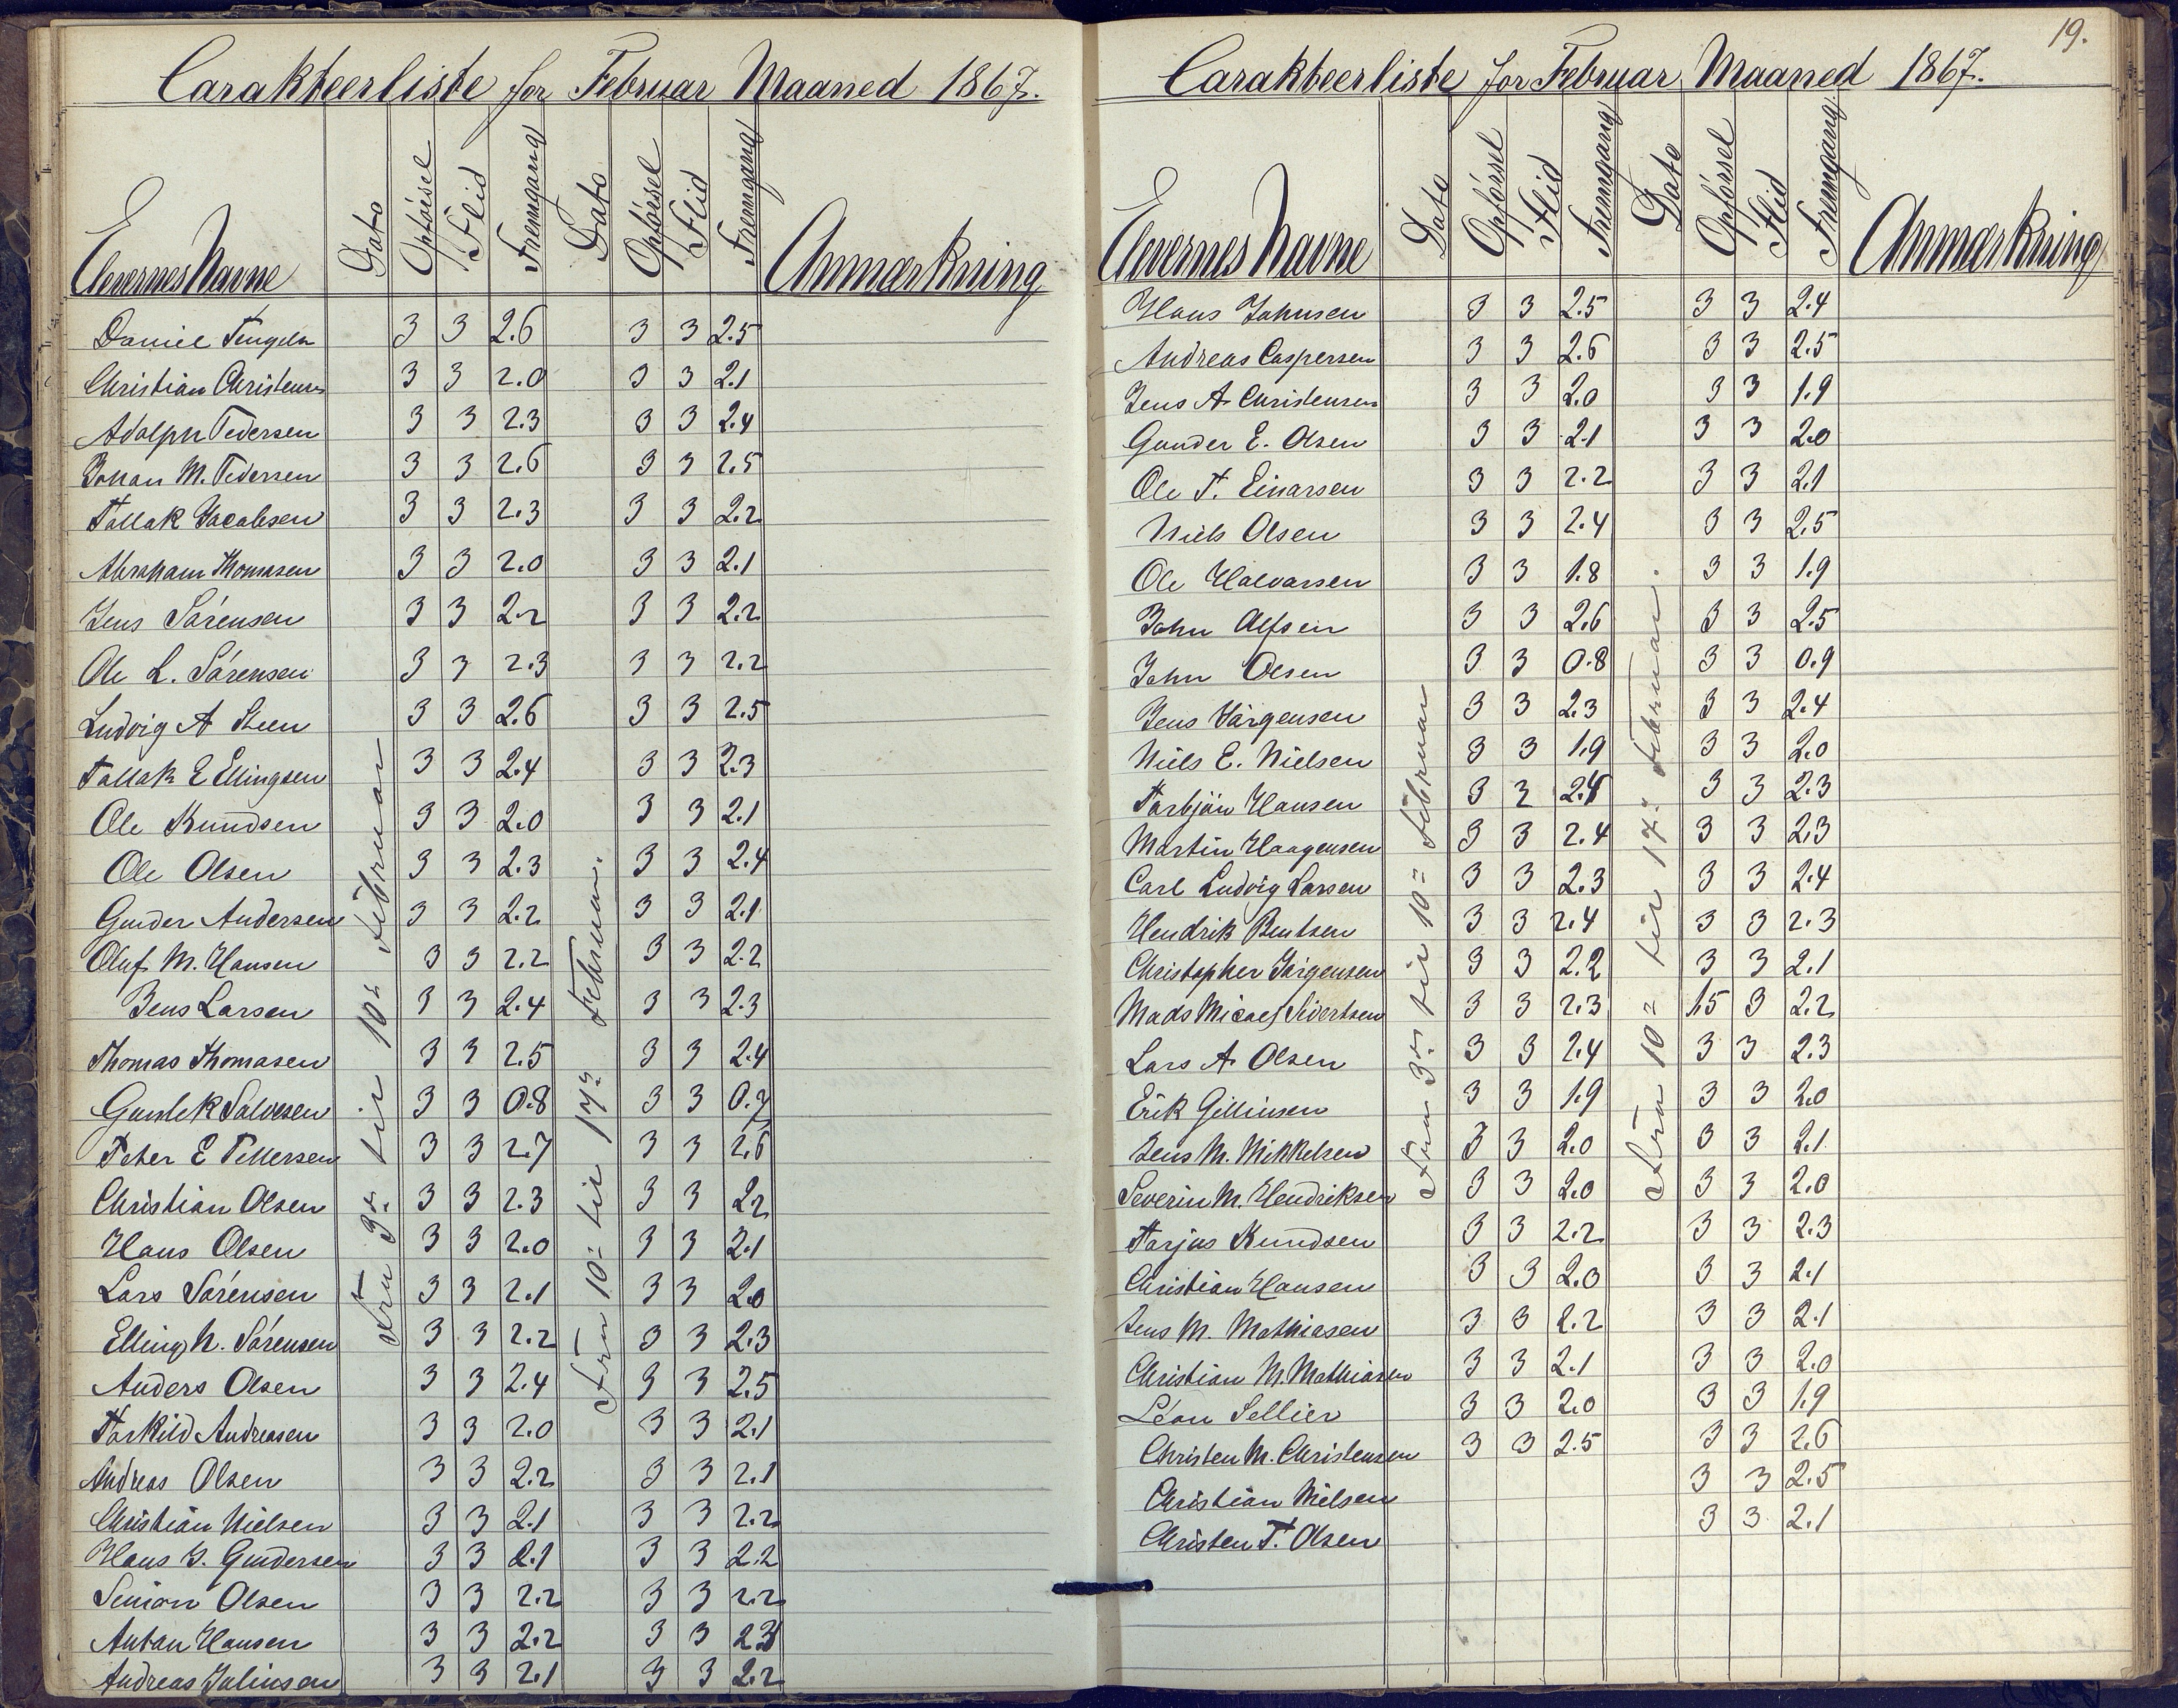 Carakteerliste for Februar Maaned 1867.
Elevernes Navne Dato Opførsel Flid Fremgang Dato Opførsel Flid Fremgang Anmærkning
Fra 3de til 10de Februar
Fra 10de til 17de Februar.
Daniel 3 3 2.6 3 3 2.5
Christian Christensen 3 3 2.0 3 3 2.1
Adolph Pedersen 3 3 2.3 3 3 2.4
Johan M. Pedersen 3 3 2.6 3 3 2.5
Tallak Jacobsen 3 3 2.3 3 3 2.2
Abraham Thomasen 3 3 2.0 3 3 2.1
Jens Sørensen 3 3 2.2 3 3 2.2
Ole L. Sørensen 3 3 2.3 3 3 2.2
Ludvig A Steen 3 3 2.6 3 3 2.5
Tallak E Ellingsen 3 3 2.4 3 3 2.3
Ole Knudsen 3 3 2.0 3 3 2.1
Ole Olsen 3 3 2.3 3 3 2.4
Gunder Andersen 3 3 2.2 3 3 2.1
Oluf M. Hansen 3 3 2.2 3 3 2.2
Jens Larsen 3 3 2.4 3 3 2.3
Thomas Thomasen 3 3 2.5 3 3 2.4
Gunlek Salvesen 3 3 0.8 3 3 0.9
Peter E Pettersen 3 3 2.7 3 3 2.6
Christian Olsen 3 3 2.3 3 3 2.2
Hans Olsen 3 3 2.0 3 3 2.1
Lars Sørensen 3 3 2.1 3 3 2.0
Elling N. Sørensen 3 3 2.2 3 3 2.3
Anders Olsen 3 3 2.4 3 3 2.5
Torkild Andreasen 3 3 2.0 3 3 2.1
Andreas Olsen 3 3 2.2 3 3 2.1
Christian Nielsen 3 3 2.1 3 3 2.2
Hans G. Gundersen 3 3 2.1 3 3 2.2
Simon Olsen 3 3 2.2 3 3 2.2
Anton Hansen 3 3 2.2 3 3 2.3
Andreas Juliusen 3 3 2.1 3 3 2.2
19.
Carakteerliste for Februar Maaned 1867.
Elevernes Navne Dato Opførsel Flid Fremgang Dato Opførsel Flid Fremgang Anmærkning
Fra 3de til 10de Februar
Fra 10de til 17de Februar.
Hans Johnsen 3 3 2.5 3 3 2.4
Andreas Caspersen 3 3 2.6 3 3 2.5
Jens A. Christensen 3 3 2.0 3 3 1.9
Gunder E. Olsen 3 3 2.1 3 3 2.0
Ole T. Einarsen 3 3 2.2 3 3 2.1
Niels Olsen 3 3 2.4 3 3 2.5
Ole Halvorsen 3 3 1.8 3 3 1.9
John Alfsen 3 3 2.6 3 3 2.5
John Olsen 3 3 0.8 3 3 0.9
Jens Jørgensen 3 3 2.3 3 3 2.4
Niels E. Nielsen 3 3 1.9 3 3 2.0
Torbjøn Hansen 3 3 2.4 3 3 2.3
Martin Haagensen 3 3 2.4 3 3 2.3
Carl Ludvig Larsen 3 3 2.3 3 3 2.4
Hendrik Bentsen 3 3 2.4 3 3 2.3
Christopher Jørgensen 3 3 2.2 3 3 2.1
Mads Micael Sivertsen 3 3 2.3 1.5 3 2.2
Lars A. Olsen 3 3 2.4 3 3 2.3
Erik Gillinsen 3 3 1.9 3 3 2.0
Jens M. Mikkelsen 3 3 2.0 3 3 2.1
Severin M. Hendriksen 3 3 2.0 3 3 2.0
Torjus Knudsen 3 3 2.2 3 3 2.3
Christian Hansen 3 3 2.0 3 3 2.1
Jens M. Mathiasen 3 3 2.2 3 3 2.1
Christian M. Mathiasen 3 3 2.1 3 3 2.0
Léon Sellier 3 3 2.0 3 3 1.9
Christen M. Christensen 3 3 2.5 3 3 2.6
Christian Nielsen 3 3 2.5
Christen T. Olsen 3 3 2.1